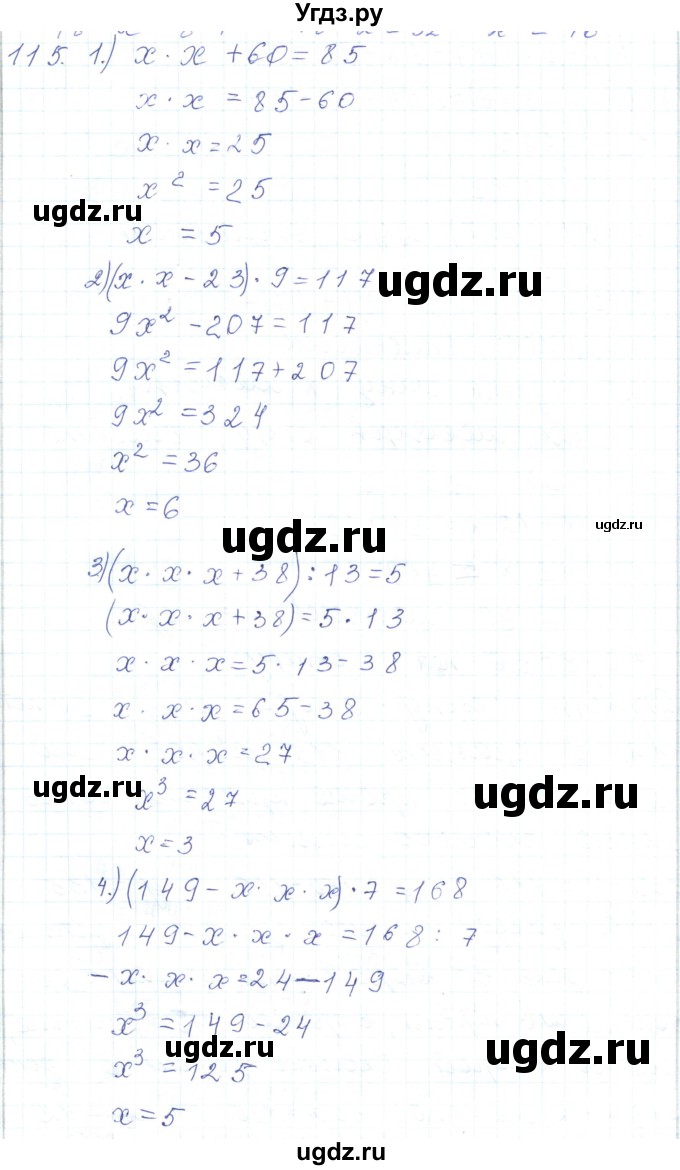 Угдз.ру
115. 1.) x · x + 60 = 85
x · x = 85 - 60
x · x = 25
x² = 25
ugdz.ru
x = 5
2) (x · x - 23) · 9 = 117
ugdz.ru
9x² - 207 = 117
9x² = 117 + 207
9x² = 324
x² = 36
x = 6
ugdz.ru
ugdz.ru
3) (x · x · x + 38) : 13 = 5
(x · x · x + 38) = 5 · 13
x · x · x = 5 · 13 - 38
x · x · x = 65 - 38
x · x · x = 27
ugdz.ru
x³ = 27
ugdz.ru
x = 3
4.) (149 - x · x · x) · 7 = 168
149 - x · x · x = 168 : 7
- x · x · x = 24 - 149
x³ = 149 - 24
ugdz.ru
ugdz.ru
x³ = 125
x = 5
ugdz.ru